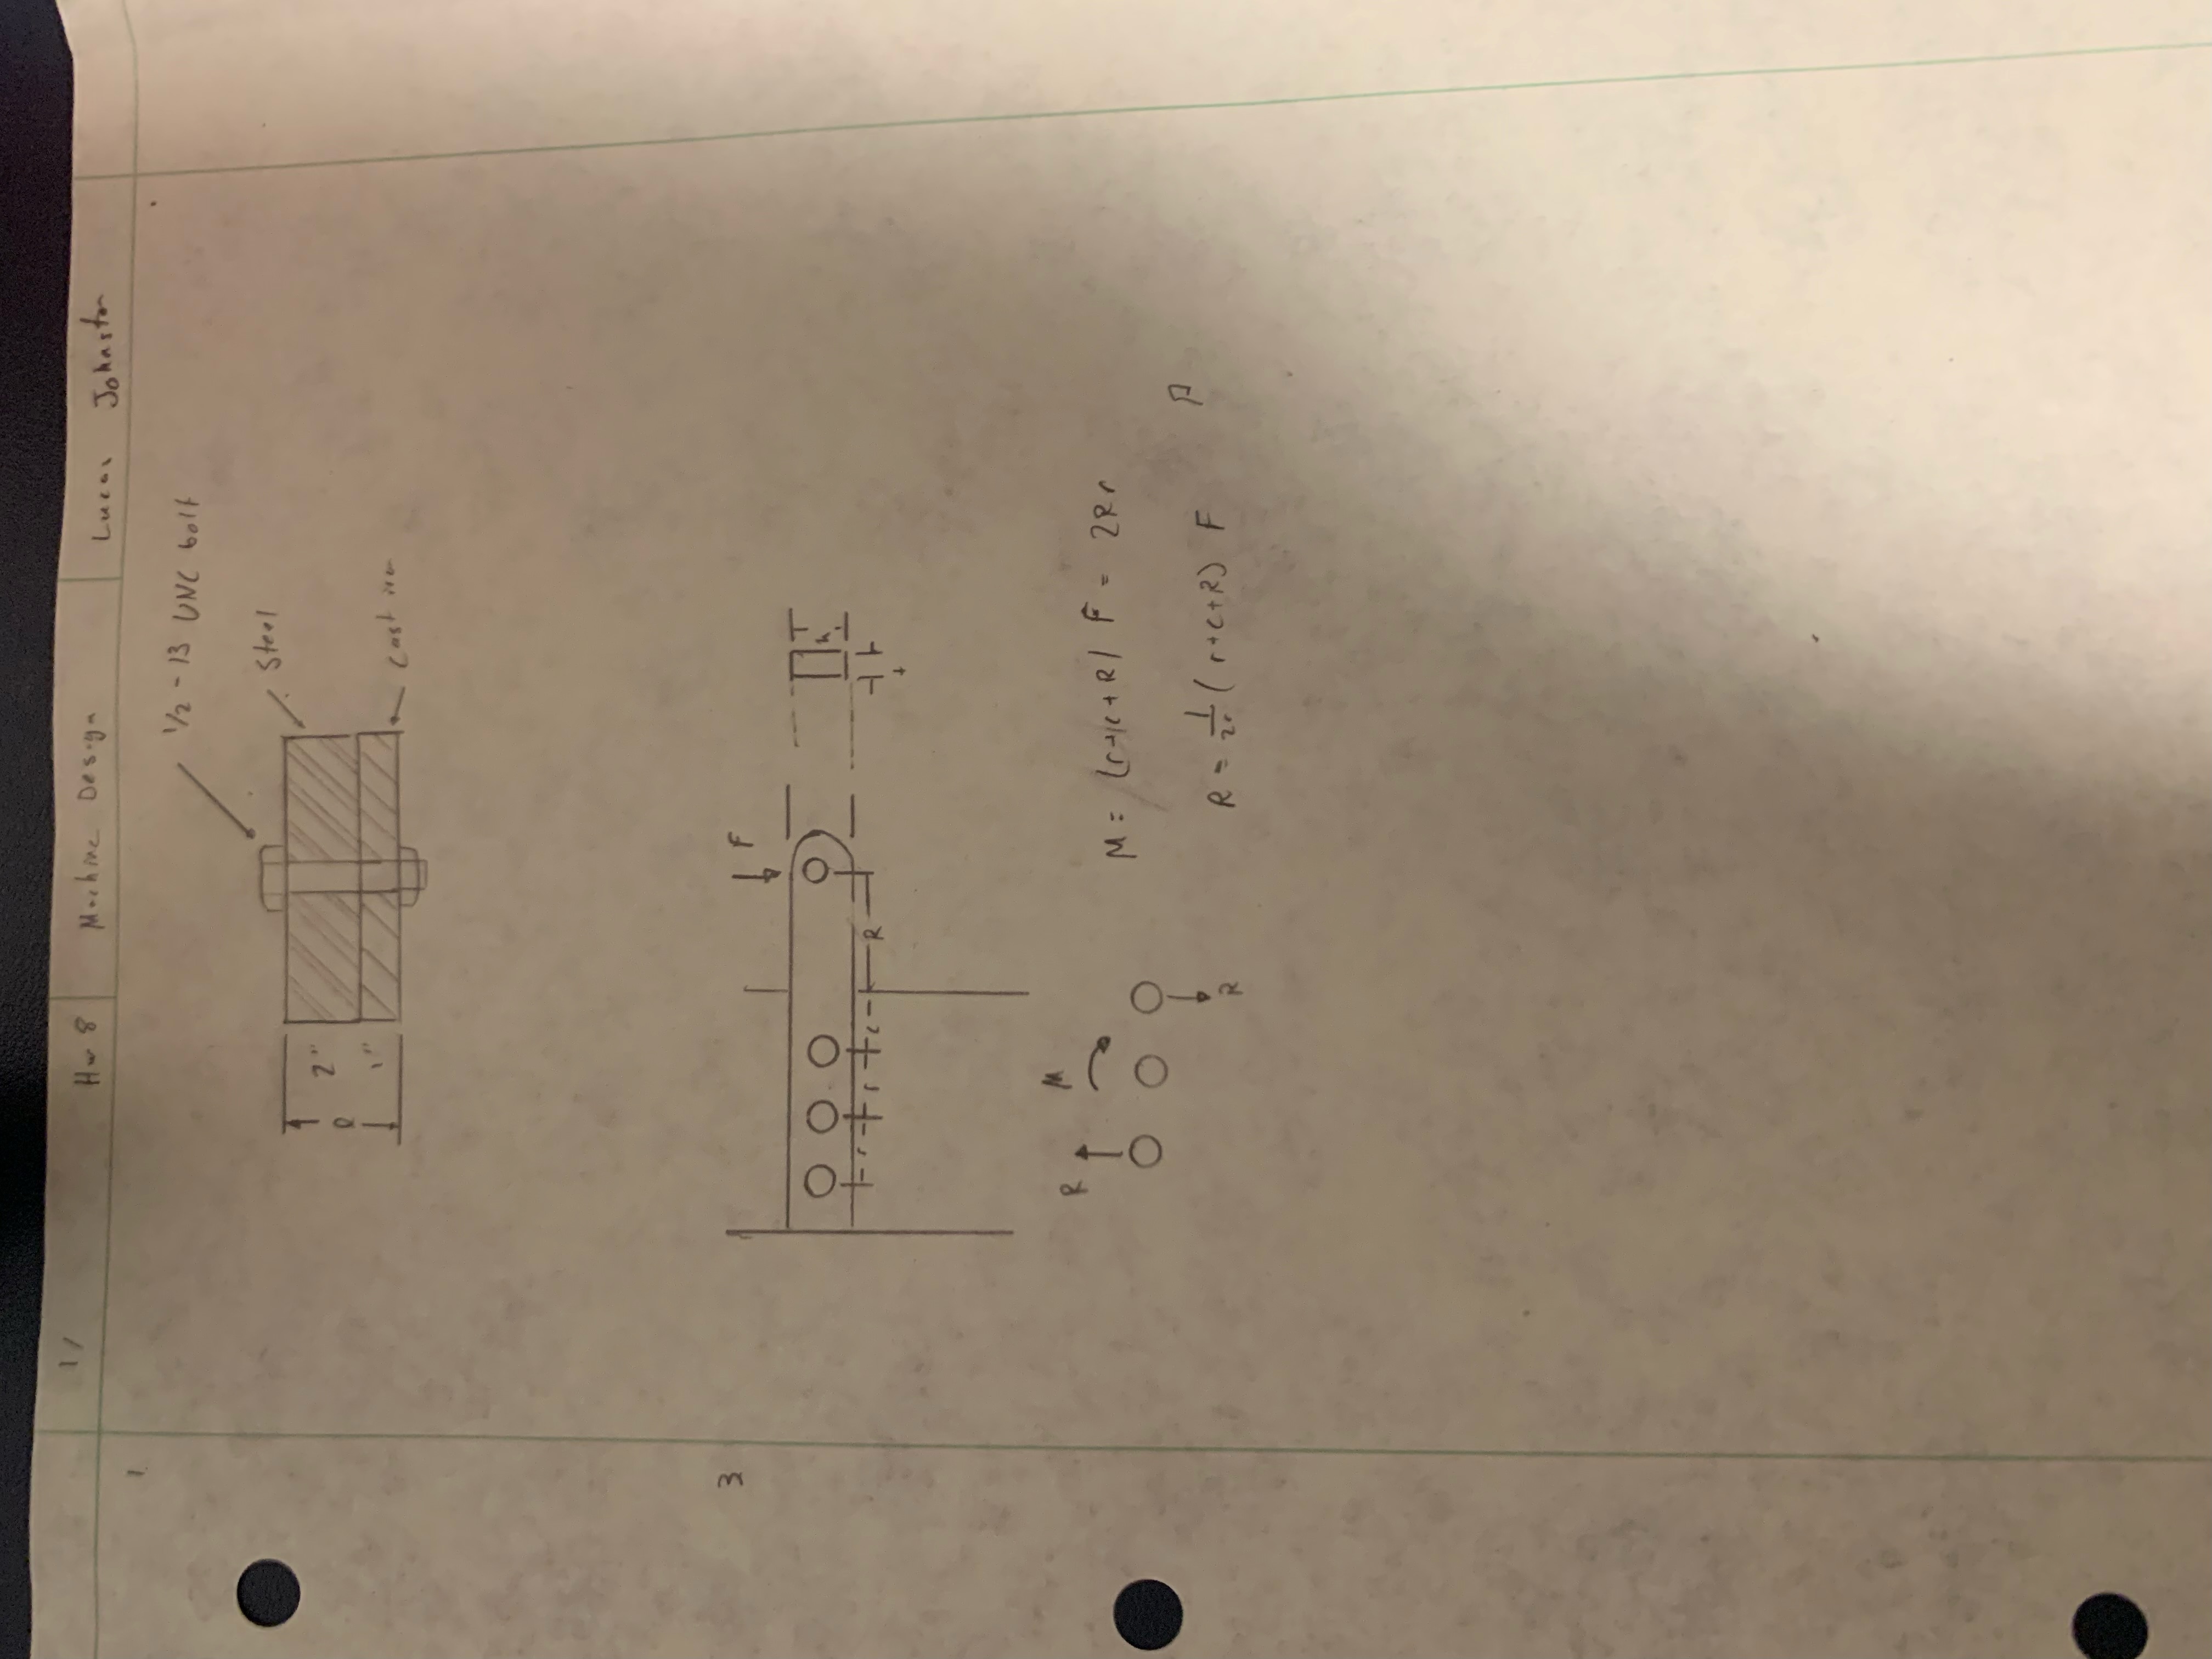 1/ Hw 8 Machine Design Lucas Johnston
1
1/2 - 13 UNC bolt
Steel
2"
l
1"
cast iron
3
F
h
r r c R
t
M
R
M = (r+c+R) F = 2Rr
R = 1/2r (r+c+R) F
R